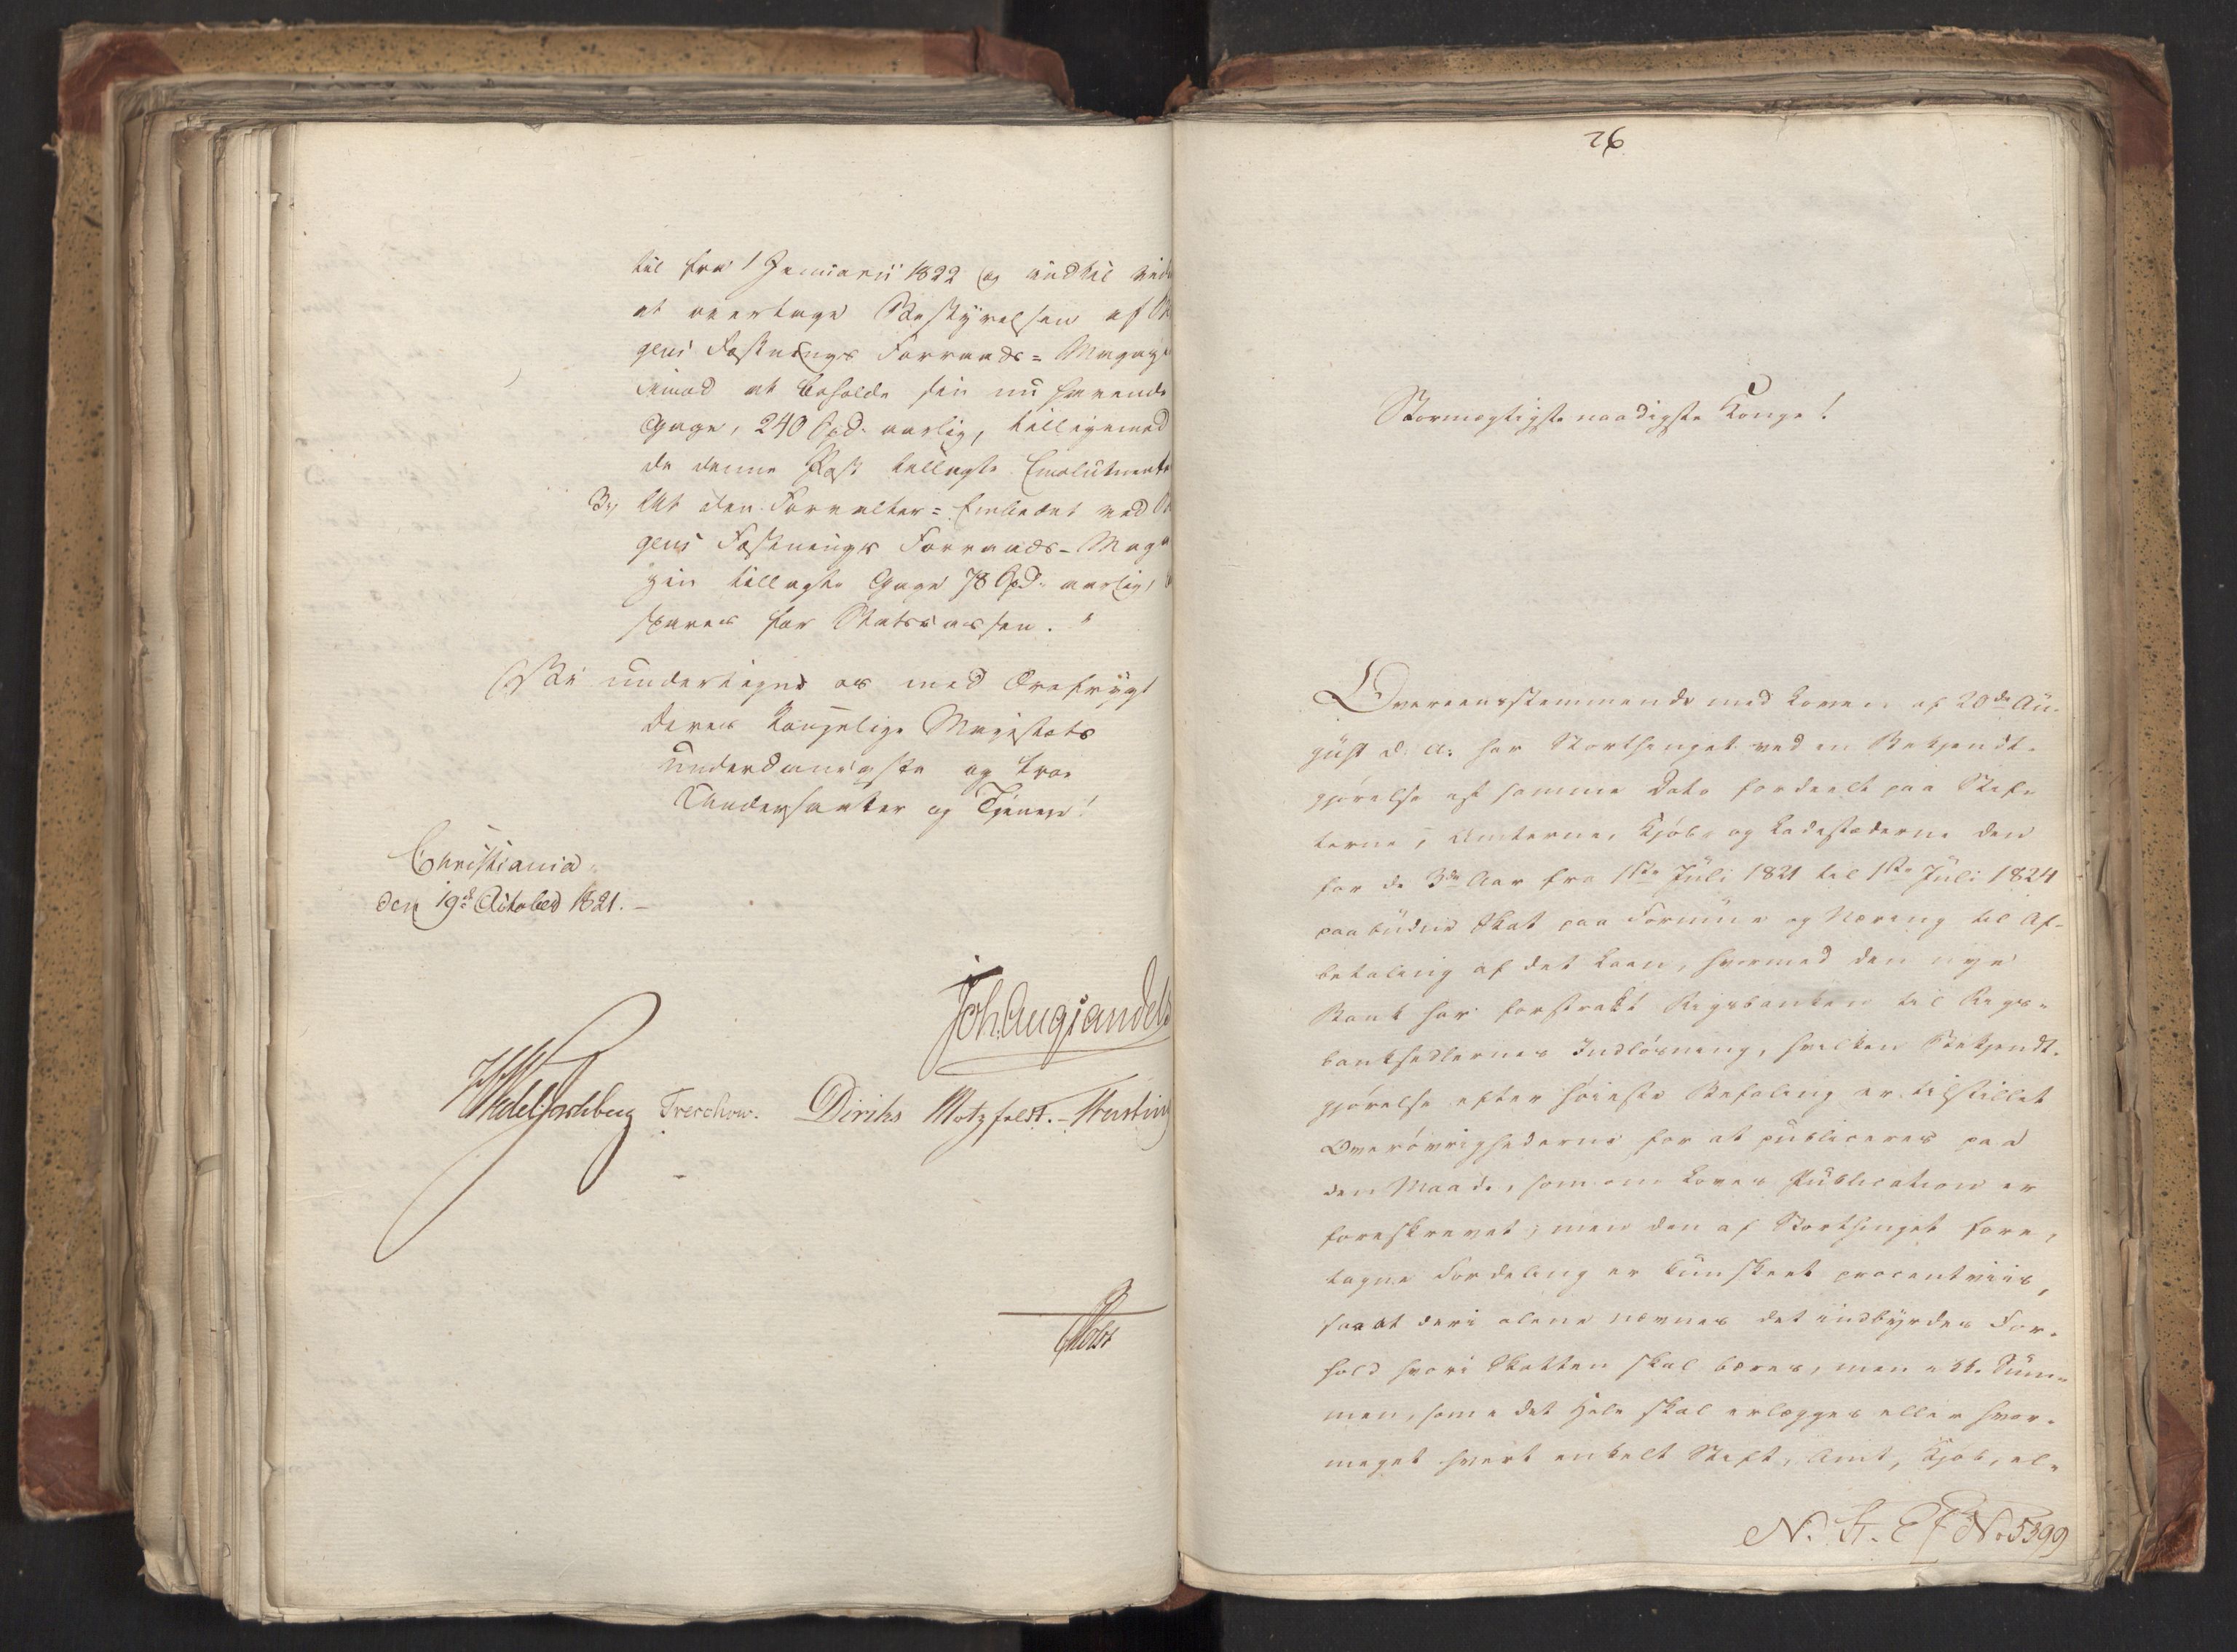 til fra 1 Januarii 1822 og indtil
at overtage Bestyrelsen af
gens Fæstnings Forraads-Magaz
imod at beholde sin nu havende
Gage, 240 Spd. aarlig, tilligemed
de denne Post tillagte Emolumente
3, At den Forvalter-Embedet ved
gens Fæstnings Forraads-Maga
zin tillagte Gage 78 Spd. aarlig,
spares for Statscassen."
Vi undertegne os med Ærefrygt
Deres Kongelige Majestæts
underdanigste og troe
Undersaatter og Tjenere!
Christiania
den 19de October 1821.
Joh. Aug Sandels
Wedel Jarlsberg Treschow. Diriks Motzfeldt. - Fasting
Holst
26
Stormægtigste naadigste Konge!
Overeensstemmende med Loven af 20de Au-
gust d. A. har Storthinget ved en Bekjendt-
gjørelse af samme Dato fordeelt paa Stif-
terne, Amterne, Kjøb- og Ladestæderne den
for de 3de Aar fra 1ste Juli 1821 til 1ste Juli 1824
paabudne Skat paa Formue og Næring til Af-
betaling af det Laan, hvormed den nye
Bank har forstrakt Rigsbanken til Rigs-
banksedlernes Indløsning, hvilken Bekjendt-
gjørelse efter høieste Befaling er tilstillet
Overøvrighederne for at publiceres paa
den Maade, som om Loves Publication er
foreskrevet; men den af Storthinget fore-
tagne Fordeling er kun skeet procentviis,
saa at deri alene nævnes det indbyrdes For-
hold hvori Skatten skal bæres, men ikke Sum-
men, som i det Hele skal erlægges eller hvor-
meget hvert enkelt Stift, Amt, Kjøb- el-
N. St. E f No 5399